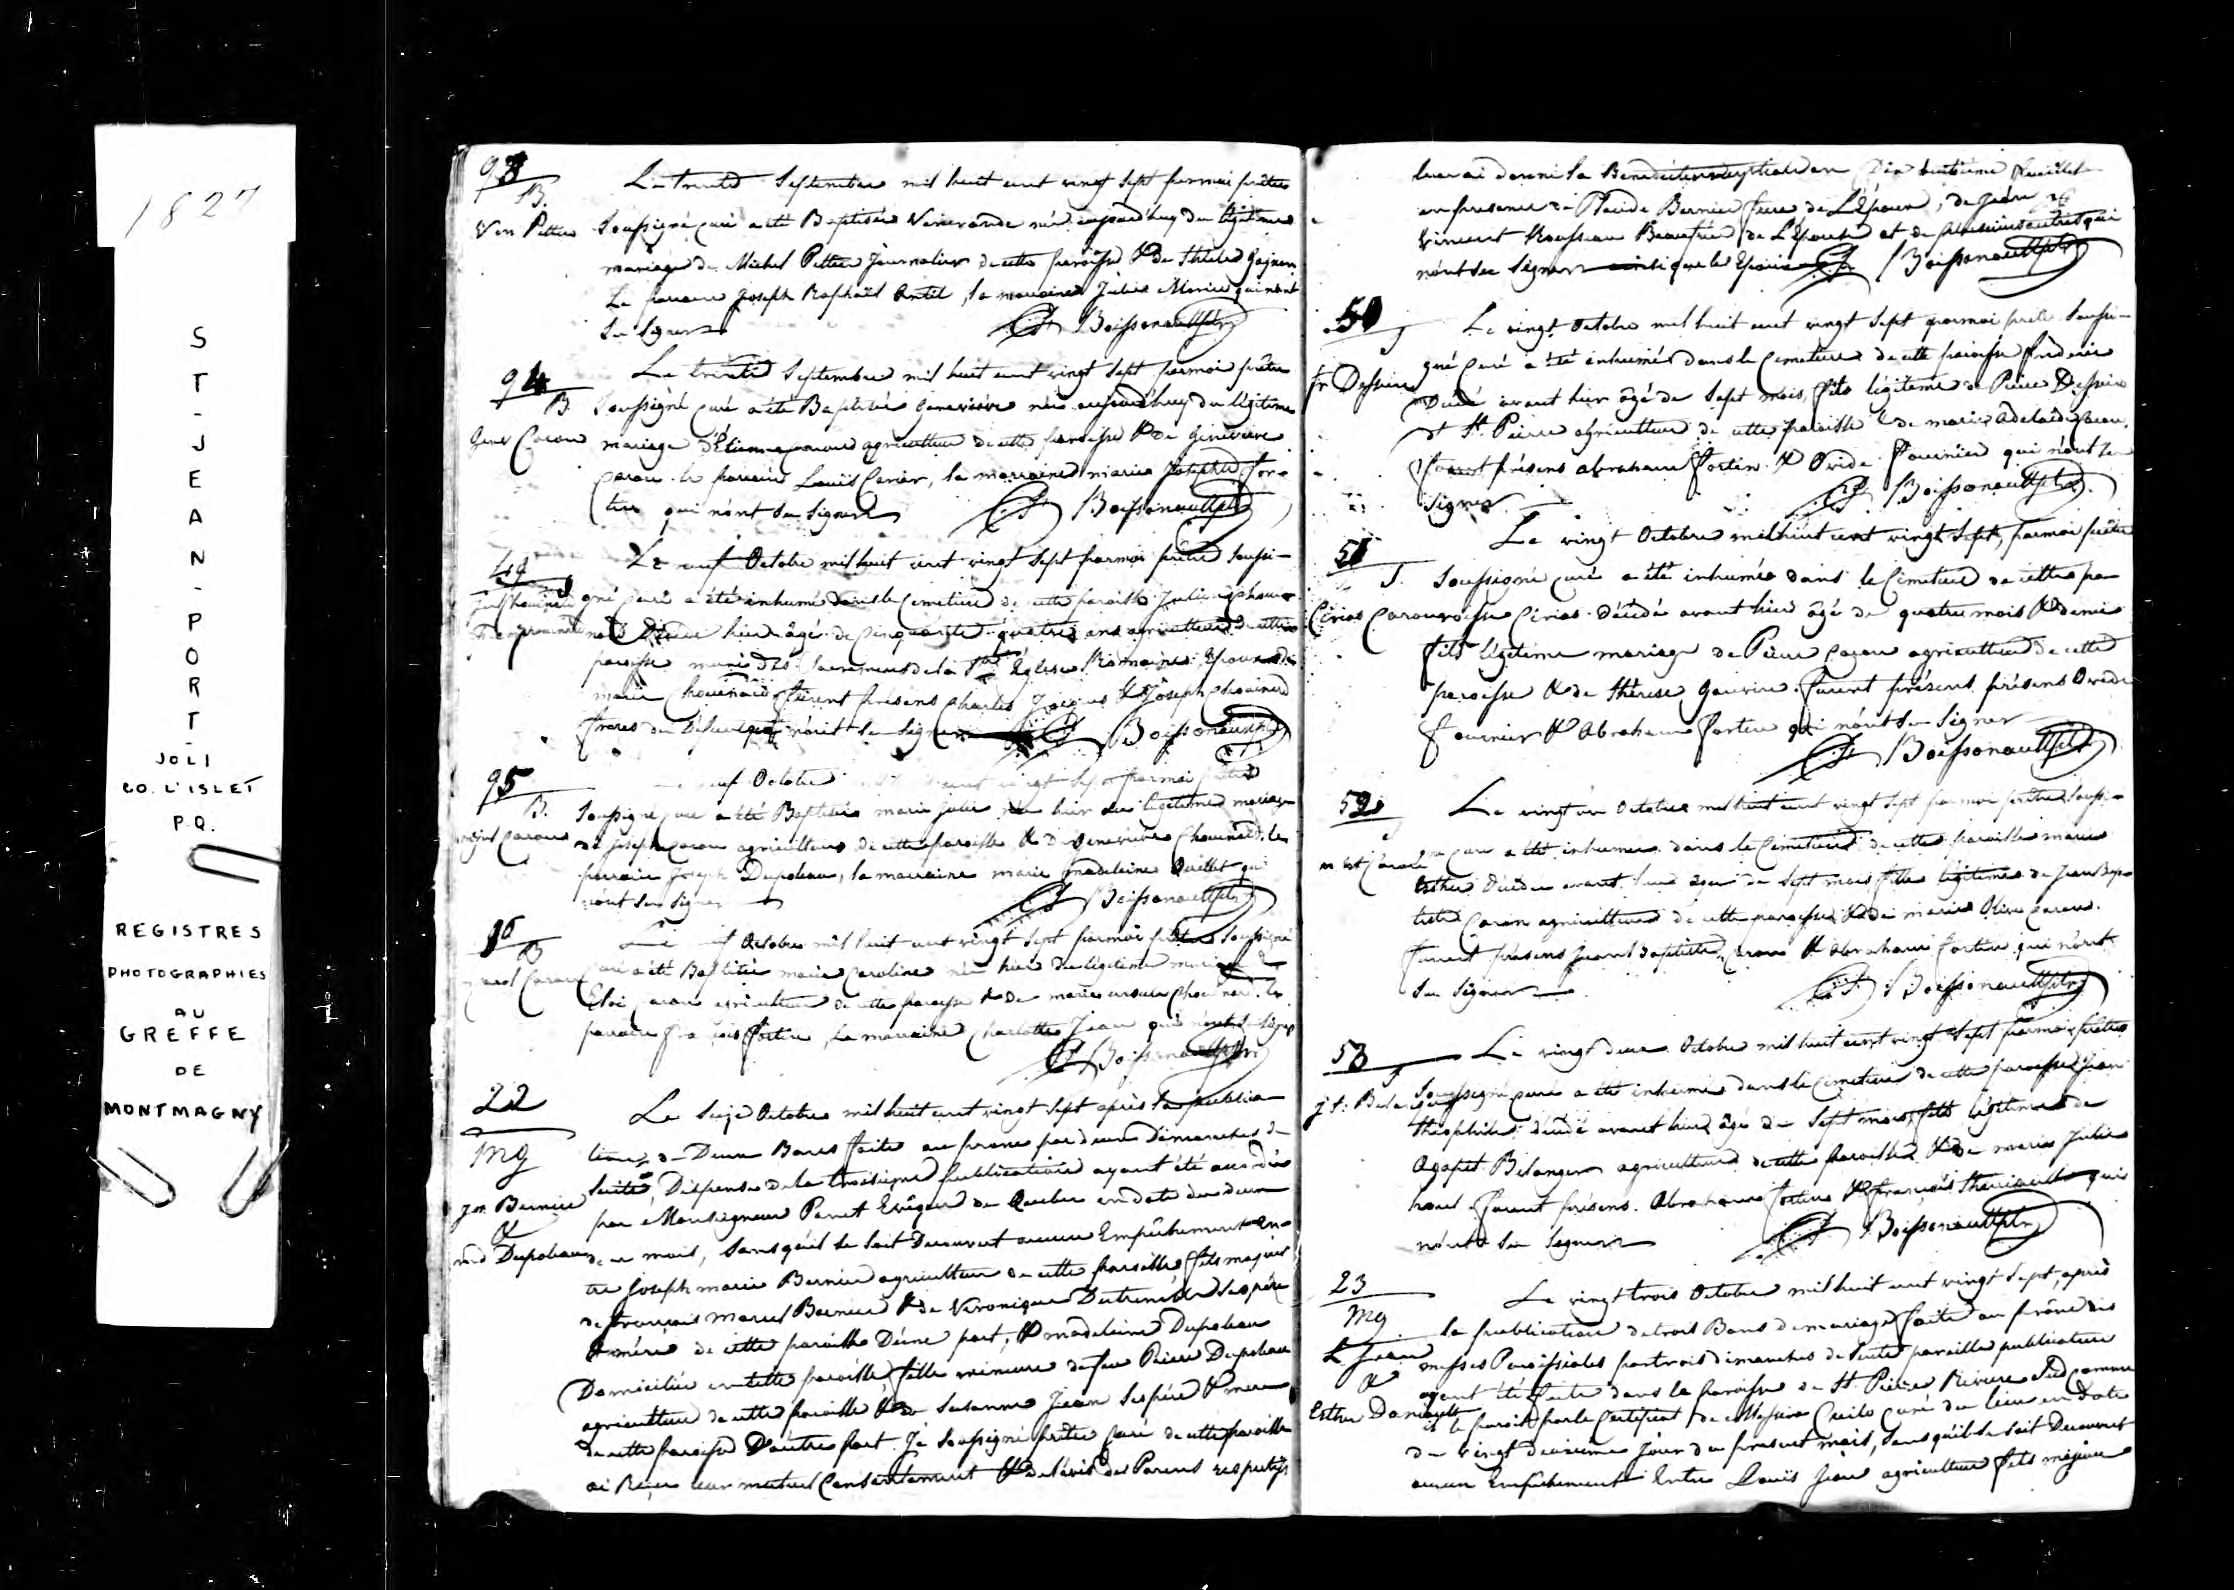 1827
S
T
-
J
E
A
N
-
P
O
R
T
-
JOLI
CO. L'ISLET
P.Q.
REGISTRES
PHOTOGRAPHIES
AU
GREFFE
DE
MONTMAGNY
93
B.
Ven Peltier
Le trente Septembre mil huit cent vingt Sept par moi prêtre
Soussigné curé a été Baptisée Vénérande née aujourd'huy du légitime
mariage de Michel Peltier Journalier de cette paroisse & de Thècle Gagnon
Le parrain Joseph Raphaël Antil, la marraine Julie Morin qui n'ont
Su Signer Boissonault ptr
94
B.
Genev Caron
Le trente Septembre mil huit cent vingt Sept par moi prêtre
Soussigné curé a été Baptisée Geneviève née aujourd'huy du légitime
mariage d'Etienne Caron agriculteur de cette paroisse & de Geneviève
Caron le parrain Louis Carier, la marraine marie Josephe For-
tin qui n'ont Su Signer Boissonault ptr
49
S
Le neuf Octobre mil huit cent vingt Sept par moi prêtre Soussi-
gné curé a été inhumé dans le Cemetiere de cette paroisse Julien Choui-
nard Décédé hier âgé de Cinquante quatre ans agriculteur de cette
paroisse muni des Sacremens de la Ste Eglise Romaine Epoux de
marie Chouinard furent présens Charles Jacques & Joseph Chouinard
freres du Défunt qui n'ont Su Signer Boissonault ptr
95
B.
neuf Octobre vingt Sept par moi prêtre
Soussigné curé a été Baptisée marie Julie née hier du légitime mariage
de Joseph Caron agriculteur de cette paroisse & de Geneviève Chouinard. le
parrain Joseph Dupoleau, la marraine marie madeleine Ouellet qui
n'ont Su Signer Boissonault ptr
96
B
Le neuf Octobre mil huit cent vingt Sept par moi prêtre Soussigné
Curé a été Baptisée marie Caroline née hier Du légitime mariage de
Eloi Caron agriculteur de cette paroisse & de marie ursule Chouinard. le
parrain François Fortin, la marraine Charlotte Jean qui n'ont Su Signer
Boissonault ptr
22
mg
Jos. Bernier
&
mad Dupoleau
Le Seize Octobre mil huit cent vingt Sept après la publica-
tion de Deux Bans faite au prone par deux dimanches de
Suite, Dispense de la troisième publication ayant été accordée
par Monseigneur Panet Evêque de Quebec en date du deux
de ce mois, Sans qu'il se soit Decouvert aucun Empêchement en-
tre Joseph marie Bernier agriculteur de cette paroisse fils majeur
de François marie Bernier & de Véronique Dutremble Ses père
& mère de cette paroisse D'une part, & madeleine Dupoleau
Domiciliée en cette paroisse, fille mineure de feu Pierre Dupoleau
agriculteur de cette paroisse & de Susanne Jean Ses père & mere
de cette paroisse D'autre part. Je Soussigné prêtre Curé de cette paroisse
ai Reçu leur mutuel Consentement & de l'avis des Parens respectifs
leur ai donné la Benediction nuptiale
en presence de Placide Bernier frere de L'Epoux, de Jean
Vincent Rousseau Beaufrère de L'Epouse et de plusieurs autres qui
n'ont Su Signer ainsi que les Epoux Boissonault ptr
50
S
fr Dessein
Le vingt Octobre mil huit cent vingt Sept par moi prêtre Soussi-
gné curé a été inhumé dans le Cemetiere de cette paroisse Frédéric
Décédé avant hier âgé de Sept mois, fils légitime de Pierre Dessein
dt St. Pierre agriculteur de cette paroisse & de marie Adelaïde Caron.
furent présens Abraham Fortin & Ovide Fournier qui n'ont Su
Signer. Boissonault ptr
51
S.
Cirias Caron
Le vingt Octobre mil huit cent vingt Sept, par moi prêtre
Soussigné curé a été inhumé dans le Cimetiere de cette pa-
roisse Cirias Décédé avant hier âgé de quatre mois & demi
fils légitime mariage de Pierre Caron agriculteur de cette
paroisse & de Thérèse Gauvin. Furent présens présens Ovide
Fournier & Abraham Fortin qui n'ont Su Signer
Boissonault ptr
52
S
m Est Caron
Le vingt un Octobre mil huit cent vingt Sept par moi prêtre Soussi-
gné Curé a été inhumée dans le Cimetiere de cette paroisse marie
Esther Décédée avant hier agée de Sept mois, fille légitime de Jean Bap-
tiste Caron agriculteur de cette paroisse & de marie Olive Caron.
furent présens Jean Baptiste Caron & Abraham Fortin qui n'ont
Su Signer Boissonault ptr
53
S
Le vingt deux Octobre mil huit cent vingt Sept par moi prêtre
Soussigné curé a été inhumé dans le Cimetiere de cette paroisse Jean
Théophile, décédé avant hier, âgé de Sept mois, fils légitime de
Agapit Bélanger agriculteur de cette paroisse & de marie Julie
furent présens. Abraham Fortin & François Theriault qui
n'ont Su Signer Boissonault ptr
23
mg
L Jean
&
Esther Daniault
Le vingt trois Octobre mil huit cent vingt Sept, après
la publication de trois Bans de mariage faite au prône des
messes Paroissiales par trois dimanches de Suite pareille publication
ayant été faite dans la paroisse de St. Pierre Riviere Sud comme
il le paroit par le Certificat de Messire curé du lieu en date
du vingt deuxieme jour du present mois, Sans qu'il se soit Decouvert
aucun Empêchement Entre Louis Jean agriculteur fils majeur